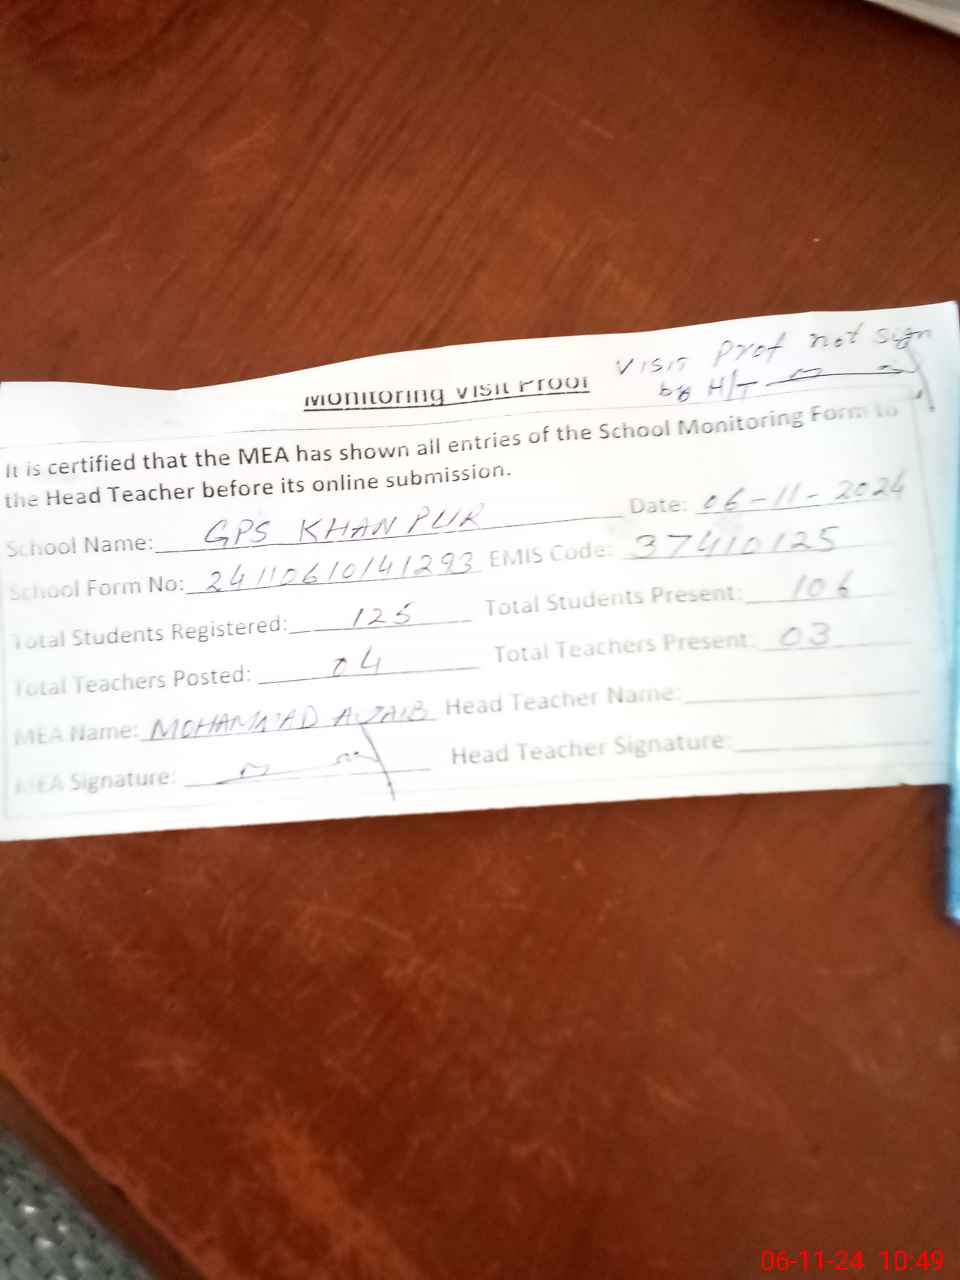 Visit Prof not sign
by H/T
Monitoring Visit Proof
It is certified that the MEA has shown all entries of the School Monitoring Form to
the Head Teacher before its online submission.
School Name: GPS KHANPUR Date: 06-11-2024
School Form No: 24110610141293 EMIS Code: 37410125
Total Students Registered: 125 Total Students Present: 106
Total Teachers Posted: 04 Total Teachers Present: 03
MEA Name: MOHAMMAD AJAIB Head Teacher Name:
MEA Signature: Head Teacher Signature:
06-11-24 10:49